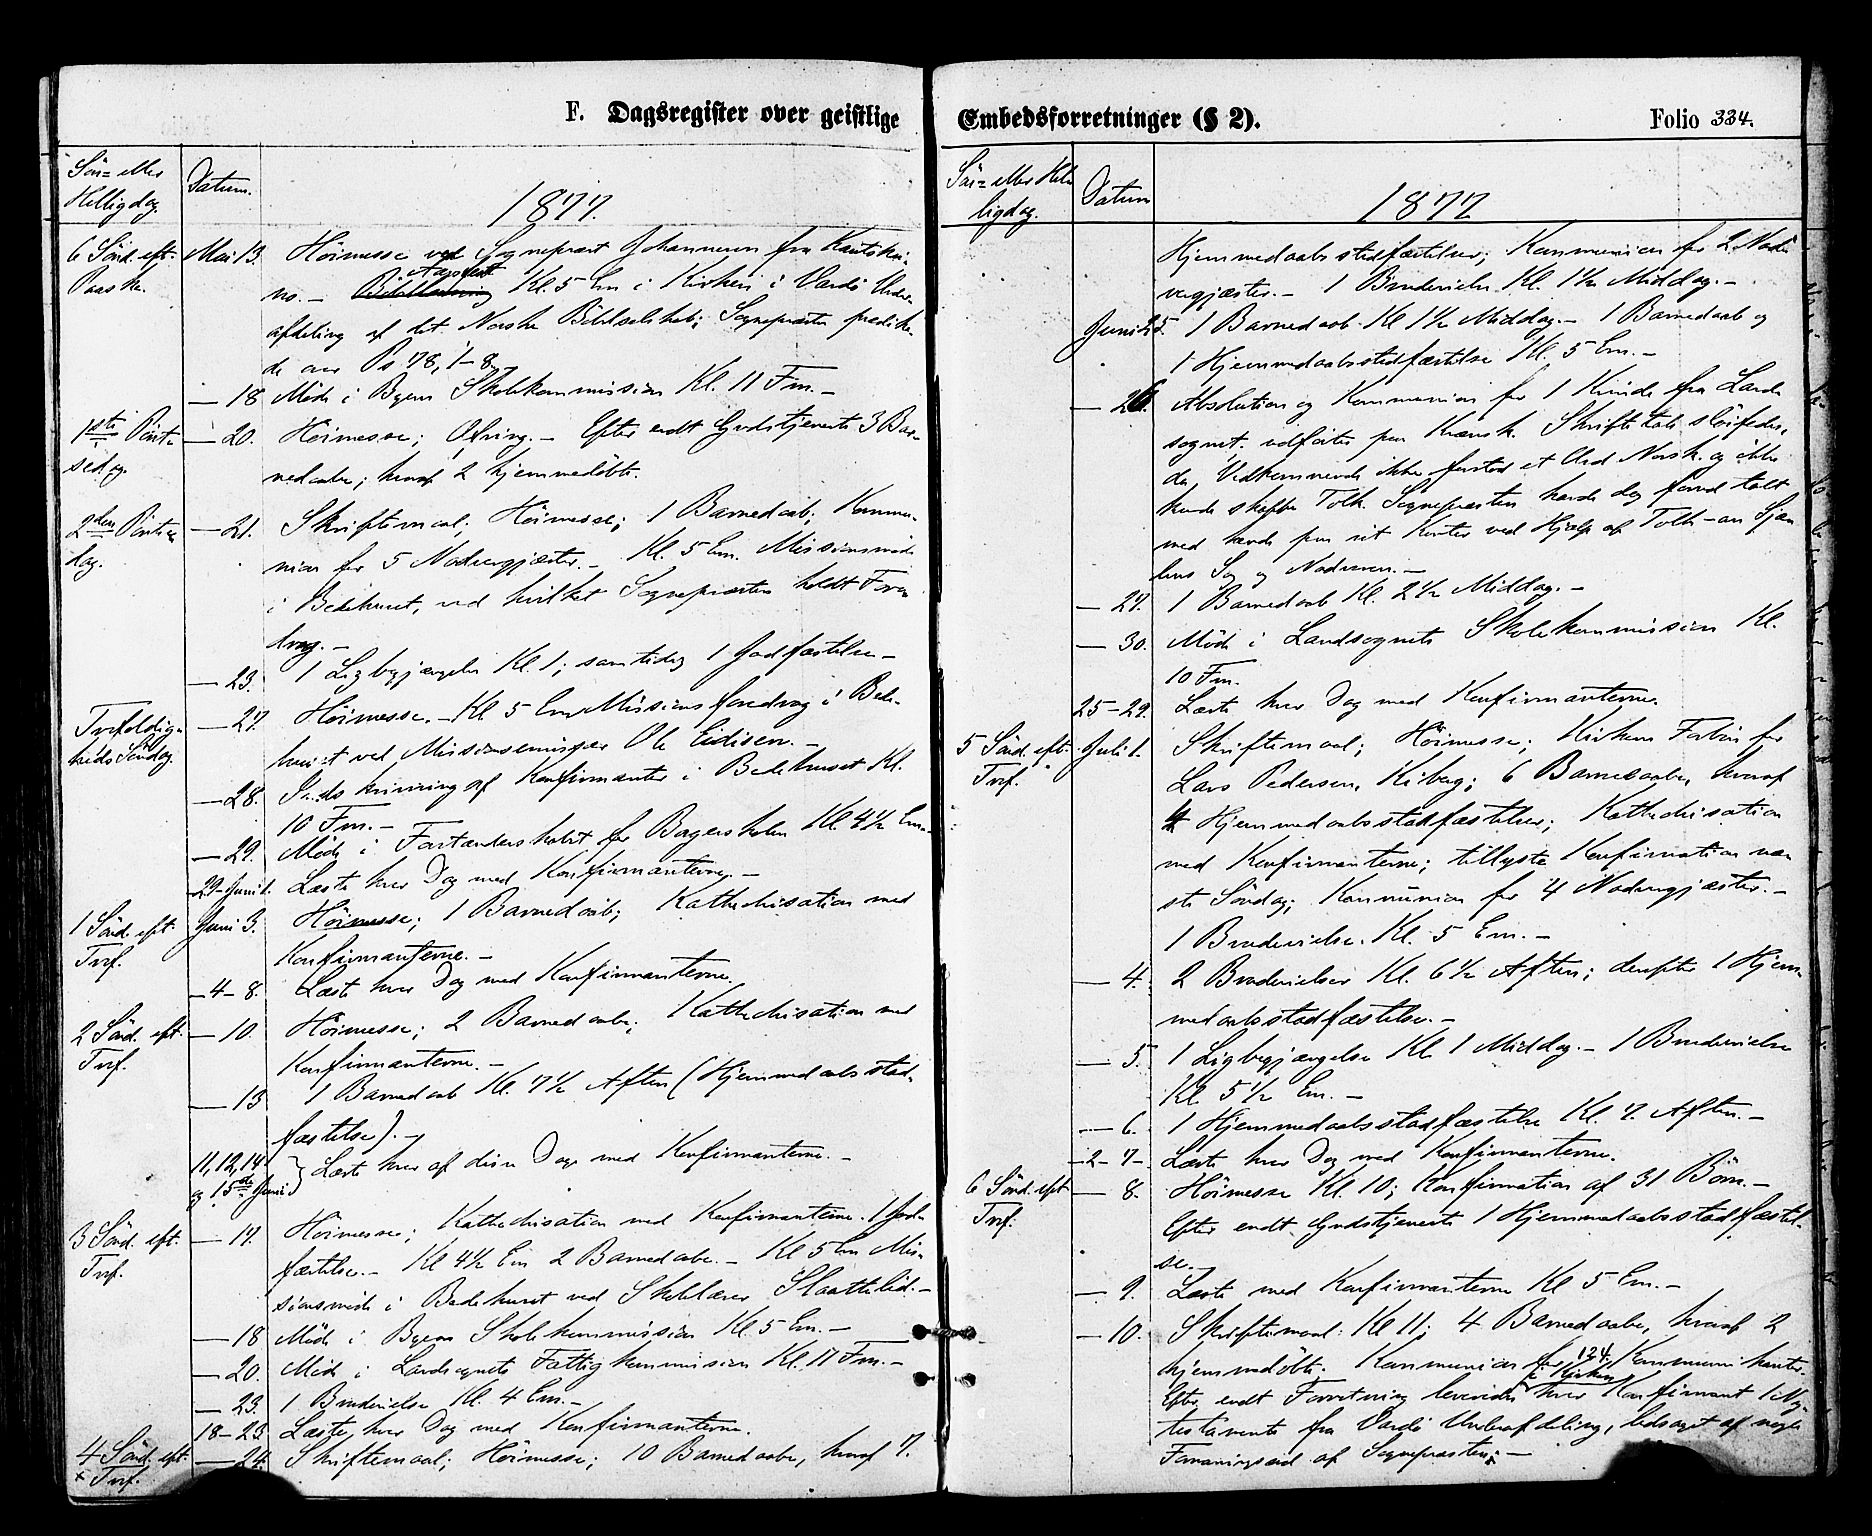 F. Dagsregister over geistlige
Søn= eller
Helligdag.
Datum.
1877.
6 Sønd. eft.
Paaske.
Mai 13.
Høimesse ved Sognepræst Johannesen fra Kautokei-
no. - Aarsfest Kl. 5 Em i Kirken i Vardø Under-
afdeling af det Norske Bibelselskab; Sognepræsten prædike-
de over Ps 78, 1-8.
— 18 Møde i Byens Skolekommission Kl. 11 Fm. -
1ste Pint-
sedag.
— 20. Høimesse; Ofring. - Efter endt Gudstjeneste 3 Bar-
nedaabe; hvoraf 2 hjemmedøbte.
2den Pintse
dag.
— 21. Skriftemaal; Høimesse; 1 Barnedaab; Kommu-
nion for 5 Nadvergjæster. - Kl. 5 Em. Missionsmøde
i Bedehuset, ved hvilket Sognepræsten holdt Fore
drag. -
— 23. 1 Ligbegjængelse Kl. 1; samtidig 1 Jordfæstelse -
Trefoldig-
heds Søndag.
— 27. Høimesse. - Kl 5 Em Missionsforedrag i Bede-
huset ved Missionsemissær Ole Eidisen. -
— 28. Indskrivning af Konfirmanter i Bedehuset Kl.
10 Fm. -
— 29. Møde i Forstanderskabet for Borgerskolen Kl. 4 1/2 Em. -
29-Juni 1. Læste hver Dag med Konfirmanterne. -
1 Sønd. eft.
Tref.
Juni 3. Høimesse; 1 Barnedaab; Kathechisation med
Konfirmanterne. -
— 4-8. Læste hver Dag med Konfirmanterne.
2 Sønd. eft.
Tref.
— 10. Høimesse; 2 Barnedaabe; Kathechisation med
Konfirmanterne. -
— 13 1 Barnedaab Kl. 7 1/2 Aften (Hjemmedaabsstad-
fæstelse). -
11, 12, 14
og 15de Juni } Læste hver af disse Dage med Konfirmanterne. -
3 Sønd. eft.
Tref.
— 17. Høimesse; Kathechisation med Konfirmanterne. 1 Jord-
fæstelse. - Kl 4 1/2 Em 2 Barnedaabe. - Kl 5 Em Mis-
sionsmøde i Bedehuset ved Skolelærer Slaattelid. -
— 18 Møde i Byens Skolekommission Kl. 5 Em. -
— 20. Møde i Landsognets Fattigkommission Kl. 11 Fm. -
— 23. 1 Brudevielse Kl. 4 Em. -
18-23. Læste hver Dag med Konfirmanterne.
4 Sønd. eft.
x Tref.
— 24. Skriftemaal; Høimesse; 10 Barnedaabe, hvoraf 7.
Embedsforretninger (§ 2).
Folio 334.
Søn= eller Hel-
ligdag.
Datum
1877
Hjemmedaabsstadfæstelser; Kommunion for 2 Nad-
vergjæster. - 1 Brudevielse Kl. 1 1/2 Middag. -
Juni 25. 1 Barnedaab Kl 1 1/2 Middag. - 1 Barnedaab og
1 Hjemmedaabsstadfæstelse Kl. 5 Em. -
— 26. Absolution og Kommunion for 1 Kvinde fra Land-
sognet, udførtes paa Kvænsk. Skriftetale sløifedes,
da Vedkommende ikke forstod et Ord Norsk og ikke
havde skaffet Tolk. Sognepræsten havde dog forud talt
med hende paa sit Kontor ved Hjælp af Tolk om Sjæ-
lens Sag og Nadveren. -
— 27. 1 Barnedaab Kl. 2 1/2 Middag. -
— 30. Møde i Landsognets Skolekommission Kl.
10 Fm.
25-29. Læste hver Dag med Konfirmanterne.
5 Sønd. eft.
Tref.
Juli 1. Skriftemaal; Høimesse; Kirkens Forbøn for
Lars Pedersen, Kiberg; 6 Barnedaabe, hvoraf
4 Hjemmedaabsstadfæstelser; Kathechisation
med Konfirmanterne; tillyste Konfirmation næ-
ste Søndag; Kommunion for 4 Nadvergjæster. -
1 Brudevielse Kl. 5 Em. -
— 4. 2 Brudevielser Kl. 6 1/2 Aften; derefter 1 Hjem-
medaabsstadfæstelse. -
— 5. 1 Ligbegjængelse Kl 1 Middag. - 1 Brudevielse
Kl. 5 1/2 Em. -
— 6. 1 Hjemmedaabsstadfæstelse Kl. 7. Aften. -
— 2-7 - Læste hver Dag med Konfirmanterne.
6 Sønd. eft
Tref.
— 8. Høimesse Kl. 10; Konfirmation af 31 Børn. -
Efter endt Gudstjeneste 1 Hjemmedaabsstadfæstel-
se. -
— 9. Læste med Konfirmanterne Kl 5 Em. -
— 10. Skriftemaal Kl 11; 4 Barnedaabe, hvoraf 2
hjemmedøbte. Kommunion for 124 Kommunikanter.
Efter endt Forretning leveredes i Kirken hver Konfirmant 1 Ny
testamente fra Vardø Underafdeling, ledsaget af nogle
Formaningsord af Sognepræsten. -